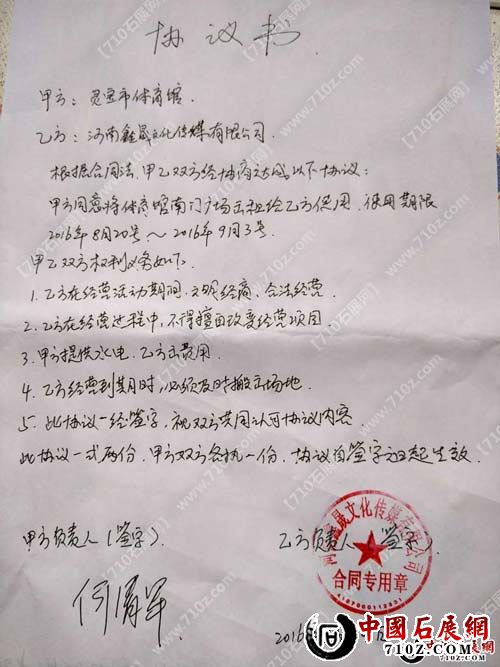 协议书
甲方：灵宝市体育馆.
乙方：河南鑫晟文化传媒有限公司
根据合同法，甲乙双方经协商达成以下协议：
甲方同意将体育馆南门广场出租给乙方使用，使用期限
2016年8月20号～2016年9月3号.
甲乙双方权利义务如下.
1. 乙方在经营活动期间，文明经商、合法经营
2. 乙方在经营过程中，不得擅自改变经营项目
3. 甲方提供水电，乙方出费用
4. 乙方经营到期时，必须及时搬出场地.
5. 此协议一经签字，视双方共同认可协议内容
此协议一式两份，甲乙双方各执一份，协议自签字之日起生效.
甲方负责人（签字）.
乙方负责人（签字）.
河南鑫晟文化传媒有限公司
合同专用章
2016年
中國石展網
710Z.COM
【710石展网】
www.710z.com